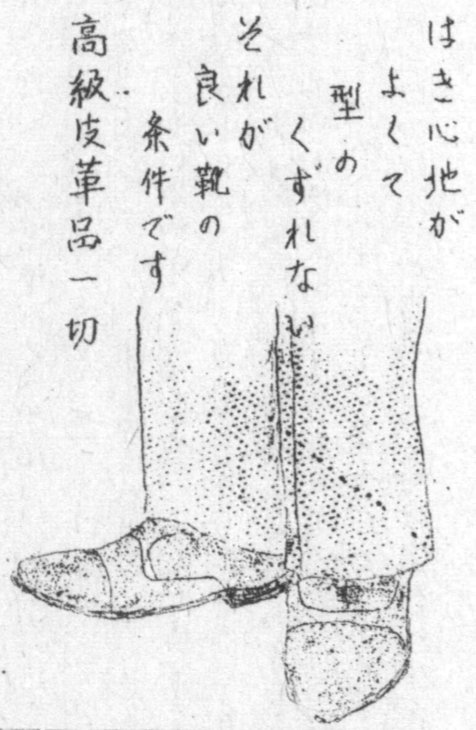 はき心地が
よくて
型の
くずれない
それが
良い靴の
条件です
高級皮革品一切